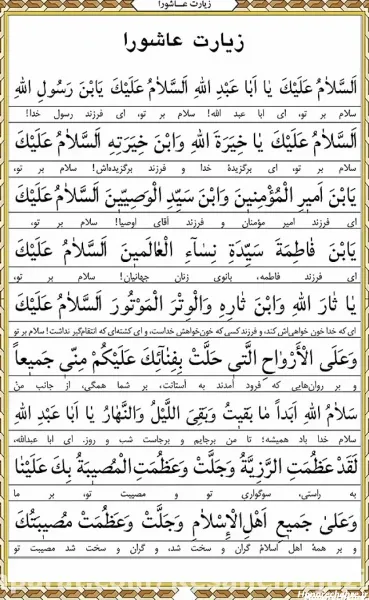 زیارت عـاشورا
زیارت عاشورا
اَلسَّلاٰمُ عَلَيْكَ يٰا اَبٰا عَبْدِ اللهِ اَلسَّلاٰمُ عَلَيْكَ يَابْنَ رَسُولِ اللهِ
سلام بر تو، ای ابا عبد الله! سلام بر تو، ای فرزند رسول خدا!
اَلسَّلاٰمُ عَلَيْكَ يٰا خِيَرَةَ اللهِ وَابْنَ خِيَرَتِهِ اَلسَّلاٰمُ عَلَيْكَ
سلام بر تو، ای برگزیدهٔ خدا و فرزند برگزیده‌اش! سلام بر تو،
يَابْنَ اَميرِ الْمُؤْمِنينَ وَابْنَ سَيِّدِ الْوَصِيّينَ اَلسَّلاٰمُ عَلَيْكَ
ای فرزند امیر مؤمنان و فرزند آقای اوصیا! سلام بر تو،
يَابْنَ فٰاطِمَةَ سَيِّدَةِ نِسٰٓاءِ الْعٰالَمينَ اَلسَّلاٰمُ عَلَيْكَ
ای فرزند فاطمه، بانوی زنان جهانیان! سلام بر تو،
يٰا ثٰارَ اللهِ وَابْنَ ثٰارِهِ وَالْوِتْرَ الْمَوْتُورَ اَلسَّلاٰمُ عَلَيْكَ
ای که خدا خون خواهی‌اش کند، و فرزند کسی که خون‌خواهش خداست، و ای کشته‌ای که انتقام‌گیر نداشت! سلام بر تو
وَعَلَى الْأَرْوٰاحِ الَّتي حَلَّتْ بِفِنٰائِكَ عَلَيْكُمْ مِنّي جَميعاً
و بر روان‌هایی که فرود آمدند به آستانت، بر شما همگی، از جانب من
سَلاٰمُ اللهِ اَبَداً مٰا بَقيتُ وَبَقِيَ اللَّيْلُ وَالنَّهٰارُ يٰا اَبٰا عَبْدِ اللهِ
سلام خدا باد همیشه؛ تا من برجایم و برجاست شب و روز. ای ابا عبدالله،
لَقَدْ عَظُمَتِ الرَّزِيَّةُ وَجَلَّتْ وَعَظُمَتِ الْمُصيبَةُ بِكَ عَلَيْنٰا
به راستی، سوگواری تو و مصیبت تو، بر ما
وَعَلىٰ جَميعِ اَهْلِ الْاِسْلاٰمِ وَجَلَّتْ وَعَظُمَتْ مُصيبَتُكَ
و بر همهٔ اهل اسلام گران و سخت شد، و گران و سخت شد مصیبت تو